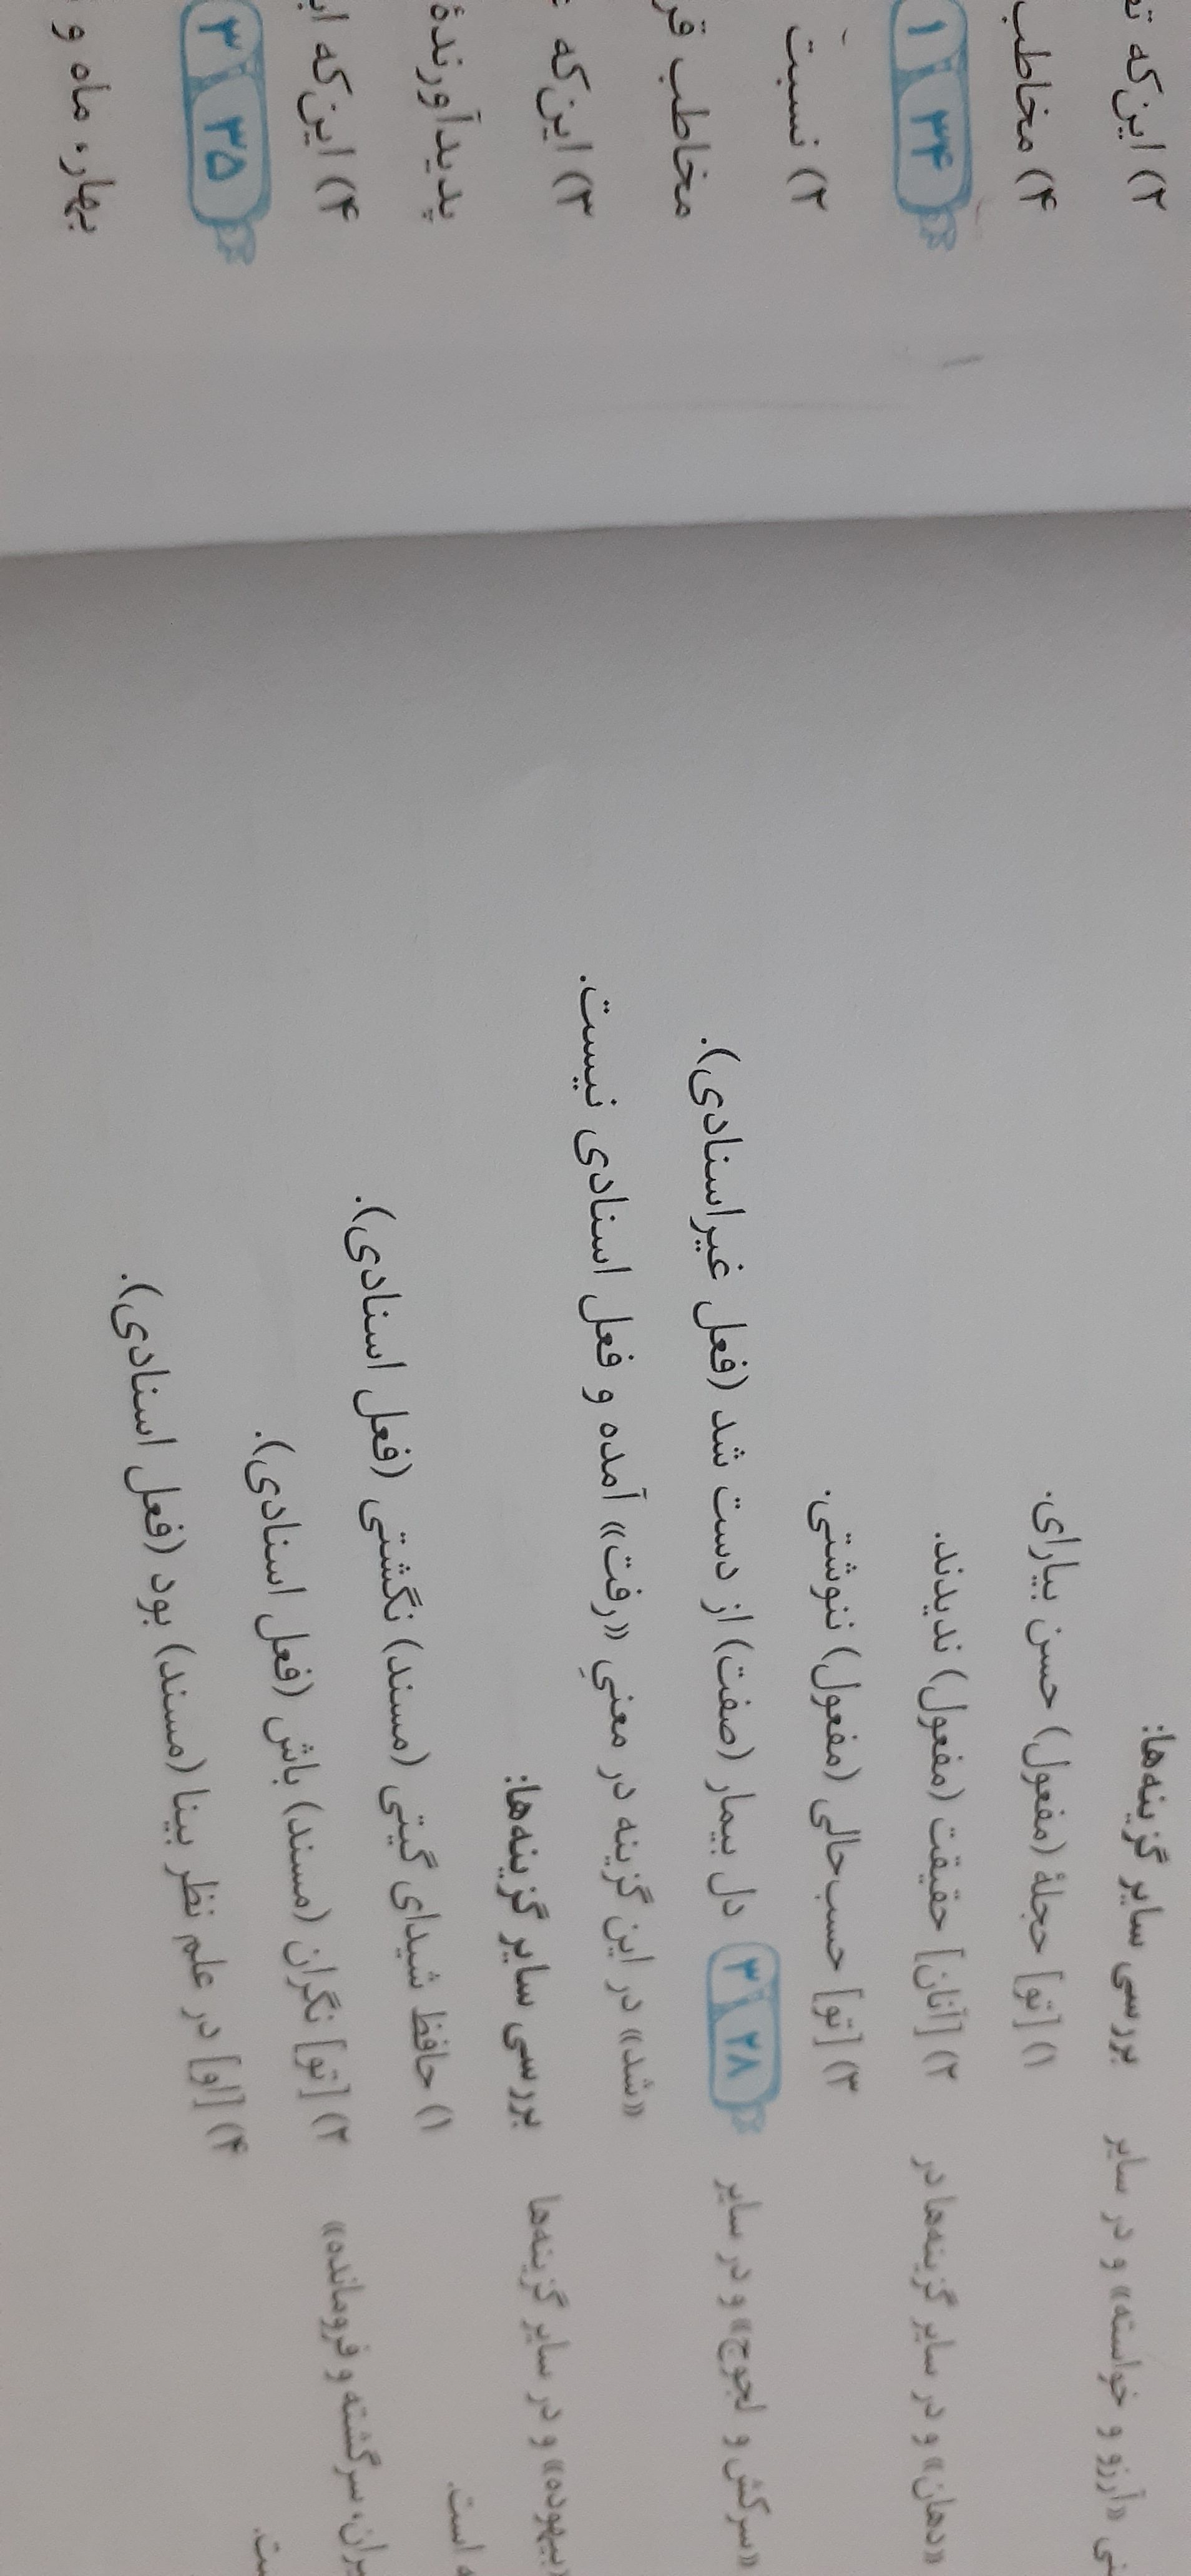 بررسی سایر گزینه‌ها:
۱) [تو] حجلهٔ (مفعول) حسن بیارای.
۲) [آنان] حقیقت (مفعول) ندیدند.
۳) [تو] حسب‌حالی (مفعول) ننوشتی.
۲۸ ۳ دل بیمار (صفت) از دست شد (فعل غیراسنادی).
«شد» در این گزینه در معنیِ «رفت» آمده و فعل اسنادی نیست.
بررسی سایر گزینه‌ها:
۱) حافظ شیدای گیتی (مسند) نگشتی (فعل اسنادی).
۲) [تو] نگران (مسند) باش (فعل اسنادی).
۴) [او] در علم نظر بینا (مسند) بود (فعل اسنادی).
«آرزو و خواسته» و در سایر
«دهان» و در سایر گزینه‌ها در
«سرکش و لجوج» و در سایر
«بیهوده» و در سایر گزینه‌ها
است.
سرگشته و فرومانده»
۲) این‌که
۴) مخاطب
۳۴ ۱
۲) نسبت
مخاطب
۳) این‌که
پدیدآورندهٔ
۴) این‌که
۳۵ ۳
بهار، ماه و